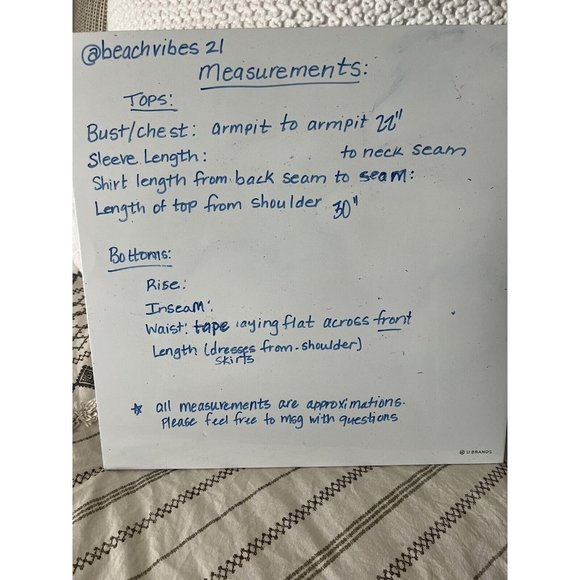 @beachvibes 21
Measurements:
Tops:
Bust/chest: armpit to armpit 22"
Sleeve Length: to neck seam
Shirt length from back seam to seam:
Length of top from shoulder 30"
Bottoms:
Rise:
Inseam:
Waist: tape laying flat across front
Length (dresses from-shoulder)
skirts
* all measurements are approximations.
Please feel free to msg with questions
U BRANDS